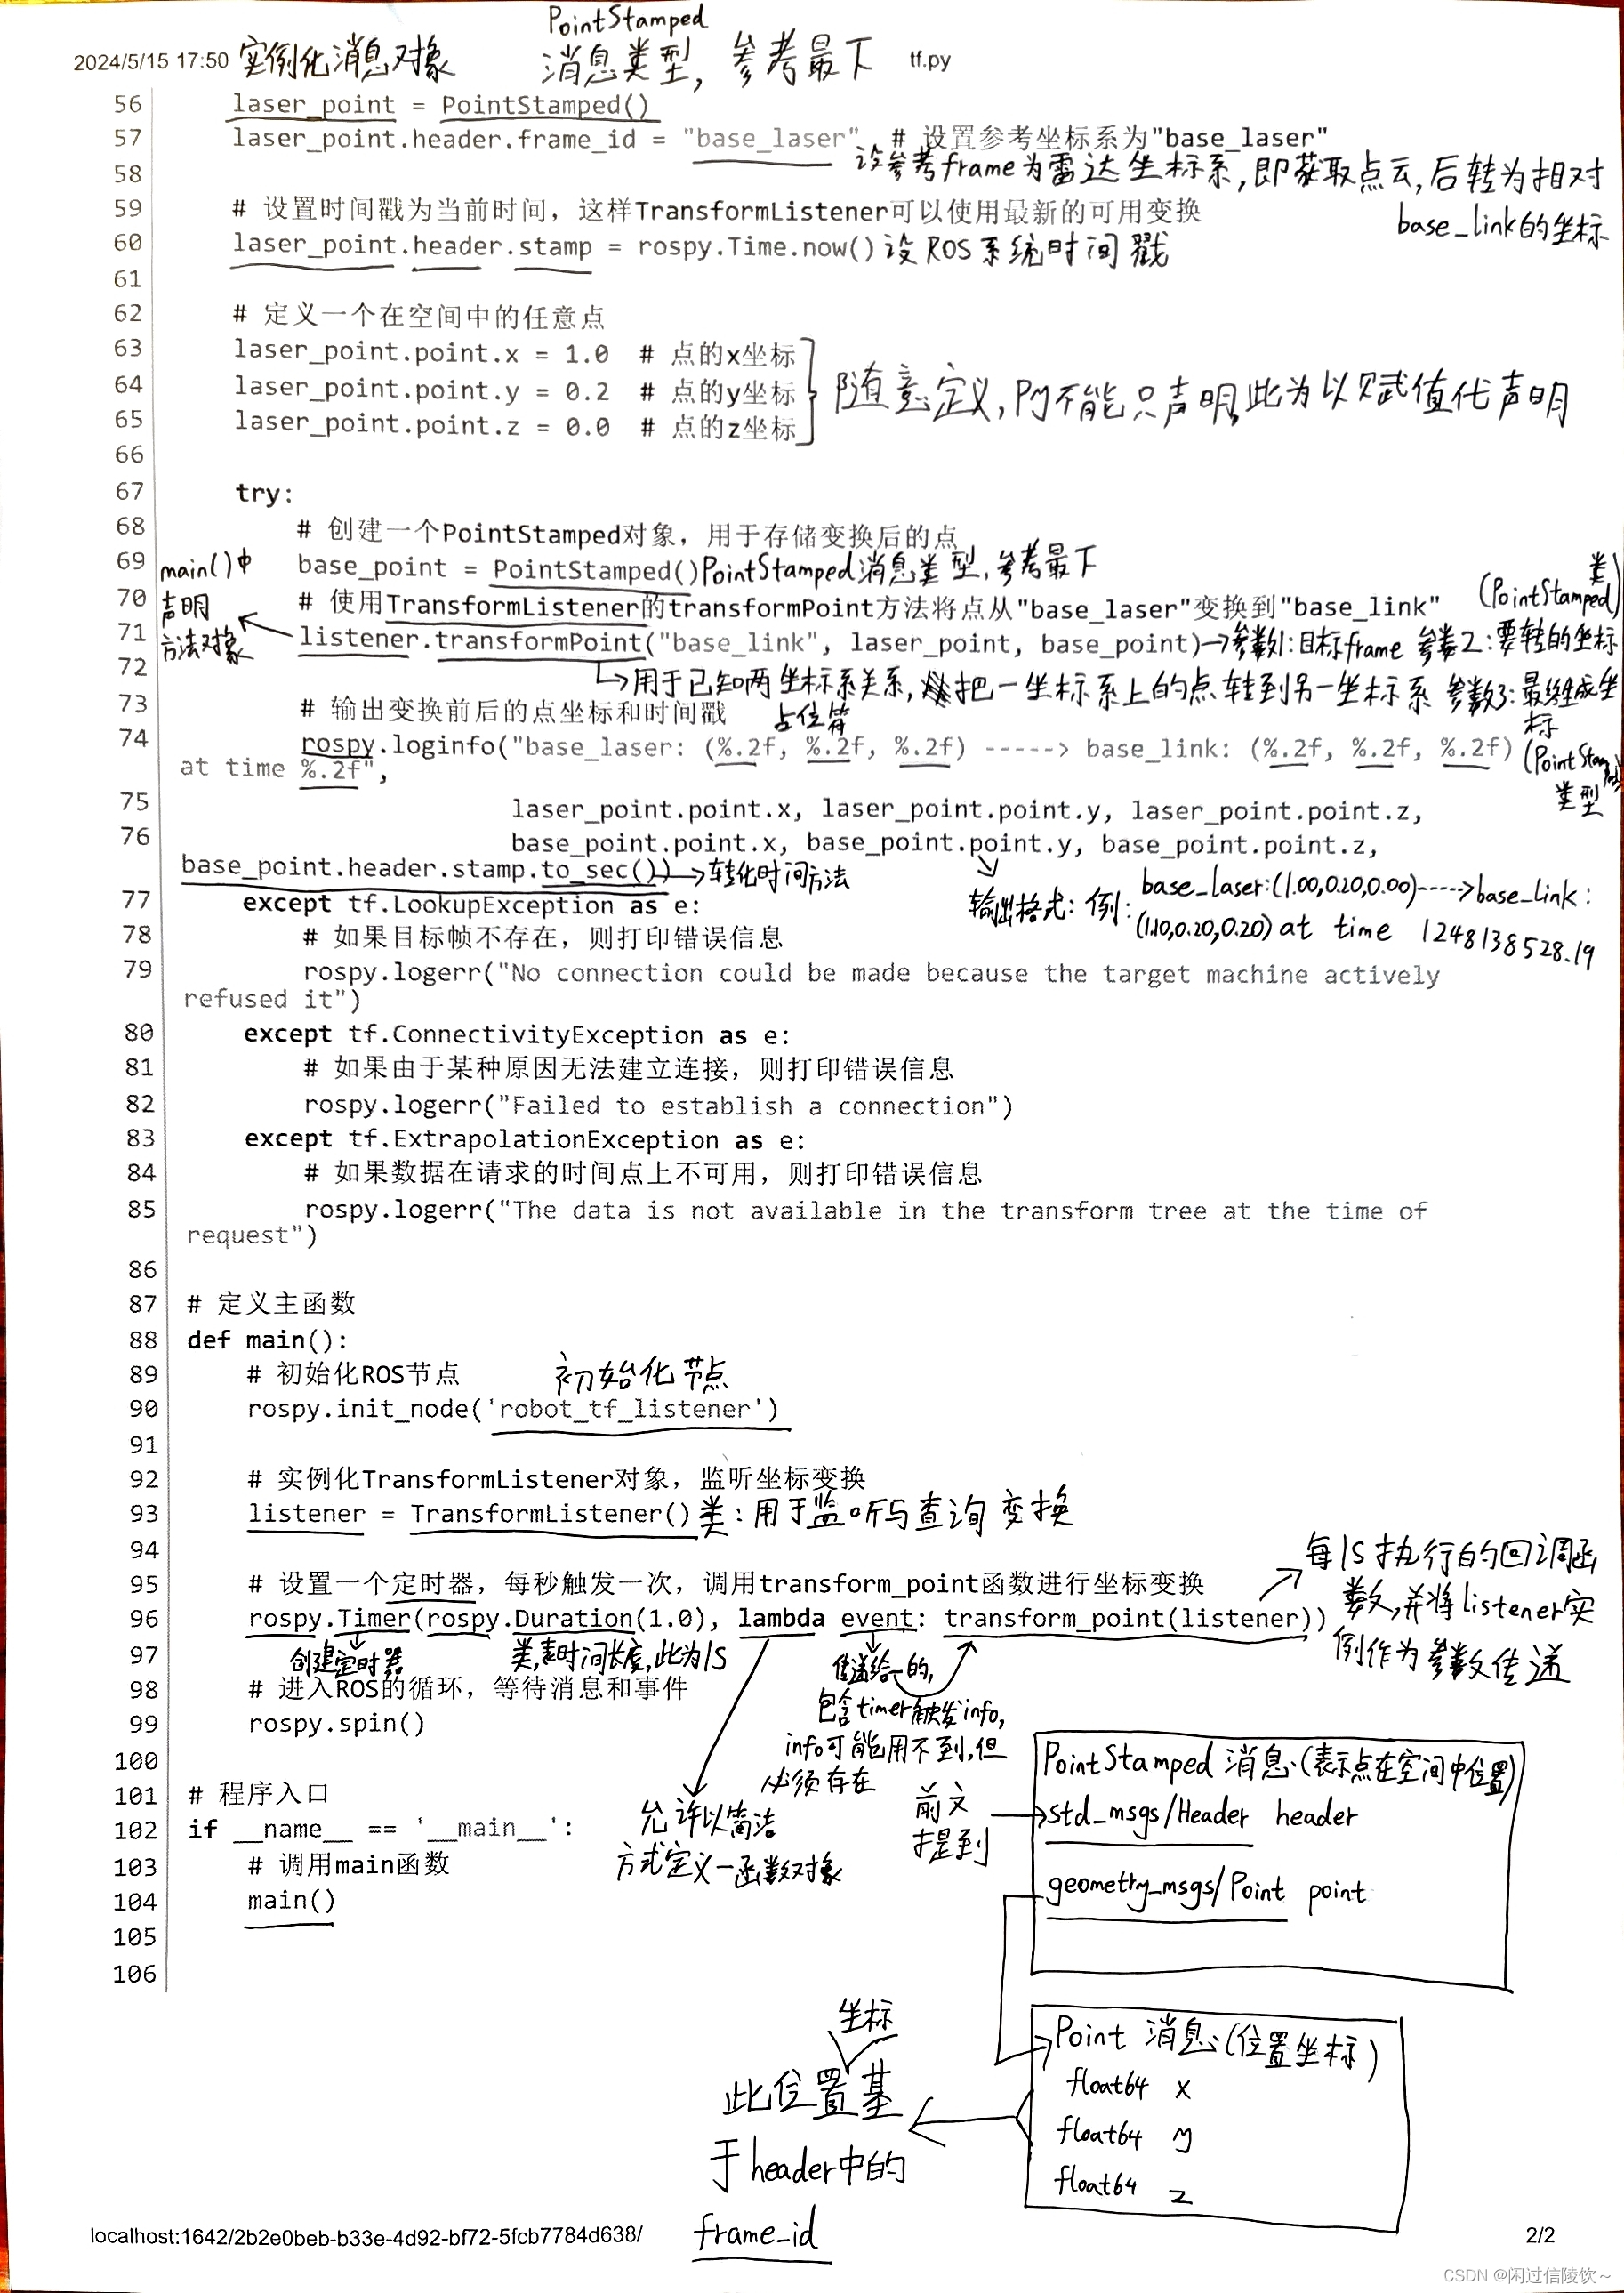 PointStamped
2024/5/15 17:50 实例化消息对象 消息类型, 参考最下 tf.py
56 laser_point = PointStamped()
57 laser_point.header.frame_id = "base_laser" # 设置参考坐标系为"base_laser"
58 设参考frame为雷达坐标系,即获取点云,后转为相对
base_link的坐标
59 # 设置时间戳为当前时间，这样TransformListener可以使用最新的可用变换
60 laser_point.header.stamp = rospy.Time.now() 设ROS系统时间戳
61
62 # 定义一个在空间中的任意点
63 laser_point.point.x = 1.0 # 点的x坐标
64 laser_point.point.y = 0.2 # 点的y坐标
随意定义,Py不能只声明,此为以赋值代声明
65 laser_point.point.z = 0.0 # 点的z坐标
66
67 try:
68 # 创建一个PointStamped对象，用于存储变换后的点
69 base_point = PointStamped() PointStamped消息类型,参考最下
main()中
声明
方法对象
70 # 使用TransformListener的transformPoint方法将点从"base_laser"变换到"base_link"
71 listener.transformPoint("base_link", laser_point, base_point)→参数1:目标frame 参数2:要转的坐标
(PointStamped类)
72 用于已知两坐标系关系,把一坐标系上的点转到另一坐标系 参数3:最终生成坐标
(PointStamped
类型
73 # 输出变换前后的点坐标和时间戳
占位符
74 rospy.loginfo("base_laser: (%.2f, %.2f, %.2f) -----> base_link: (%.2f, %.2f, %.2f)
at time %.2f",
75 laser_point.point.x, laser_point.point.y, laser_point.point.z,
76 base_point.point.x, base_point.point.y, base_point.point.z,
base_point.header.stamp.to_sec())→转化时间方法
输出格式:例:base_laser:(1.00,0.20,0.00)----->base_link:
(1.10,0.20,0.20) at time 1248138528.19
77 except tf.LookupException as e:
78 # 如果目标帧不存在，则打印错误信息
79 rospy.logerr("No connection could be made because the target machine actively
refused it")
80 except tf.ConnectivityException as e:
81 # 如果由于某种原因无法建立连接，则打印错误信息
82 rospy.logerr("Failed to establish a connection")
83 except tf.ExtrapolationException as e:
84 # 如果数据在请求的时间点上不可用，则打印错误信息
85 rospy.logerr("The data is not available in the transform tree at the time of
request")
86
87 # 定义主函数
88 def main():
89 # 初始化ROS节点 初始化节点
90 rospy.init_node('robot_tf_listener')
91
92 # 实例化TransformListener对象，监听坐标变换
93 listener = TransformListener() 类:用于监听与查询变换
94
95 # 设置一个定时器，每秒触发一次，调用transform_point函数进行坐标变换
96 rospy.Timer(rospy.Duration(1.0), lambda event: transform_point(listener))
每1S执行的回调函
数,并将listener实
例作为参数传递
97 创建定时器 类,表时间长度,此为1S
传递给一的,
包含timer触发info,
info可能用不到,但
必须存在
98 # 进入ROS的循环，等待消息和事件
99 rospy.spin()
100
101 # 程序入口
102 if __name__ == '__main__':
允许以简洁
方式定义一函数对象
103 # 调用main函数
104 main()
105
106
PointStamped 消息(表示点在空间中位置)
前文
提到
std_msgs/Header header
geometry_msgs/Point point
Point 消息(位置坐标)
float64 x
float64 y
float64 z
坐标
此位置基
于header中的
frame_id
localhost:1642/2b2e0beb-b33e-4d92-bf72-5fcb7784d638/ 2/2
CSDN @闲过信陵饮~